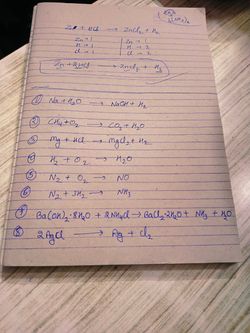 Zn + HCl → ZnCl₂ + H₂
Zn = 1 | Zn = 1
H = 1 | H = 2
Cl = 1 | Cl = 2
Zn + 2HCl → ZnCl₂ + H₂
① Na + H₂O → NaOH + H₂
② CH₄ + O₂ → CO₂ + H₂O
③ Mg + HCl → MgCl₂ + H₂
④ H₂ + O₂ → H₂O
⑤ N₂ + O₂ → NO
⑥ N₂ + 3H₂ → NH₃
⑦ Ba(OH)₂·8H₂O + 2NH₄Cl → BaCl₂·2H₂O + NH₃ + H₂O
⑧ 2AgCl → Ag + Cl₂